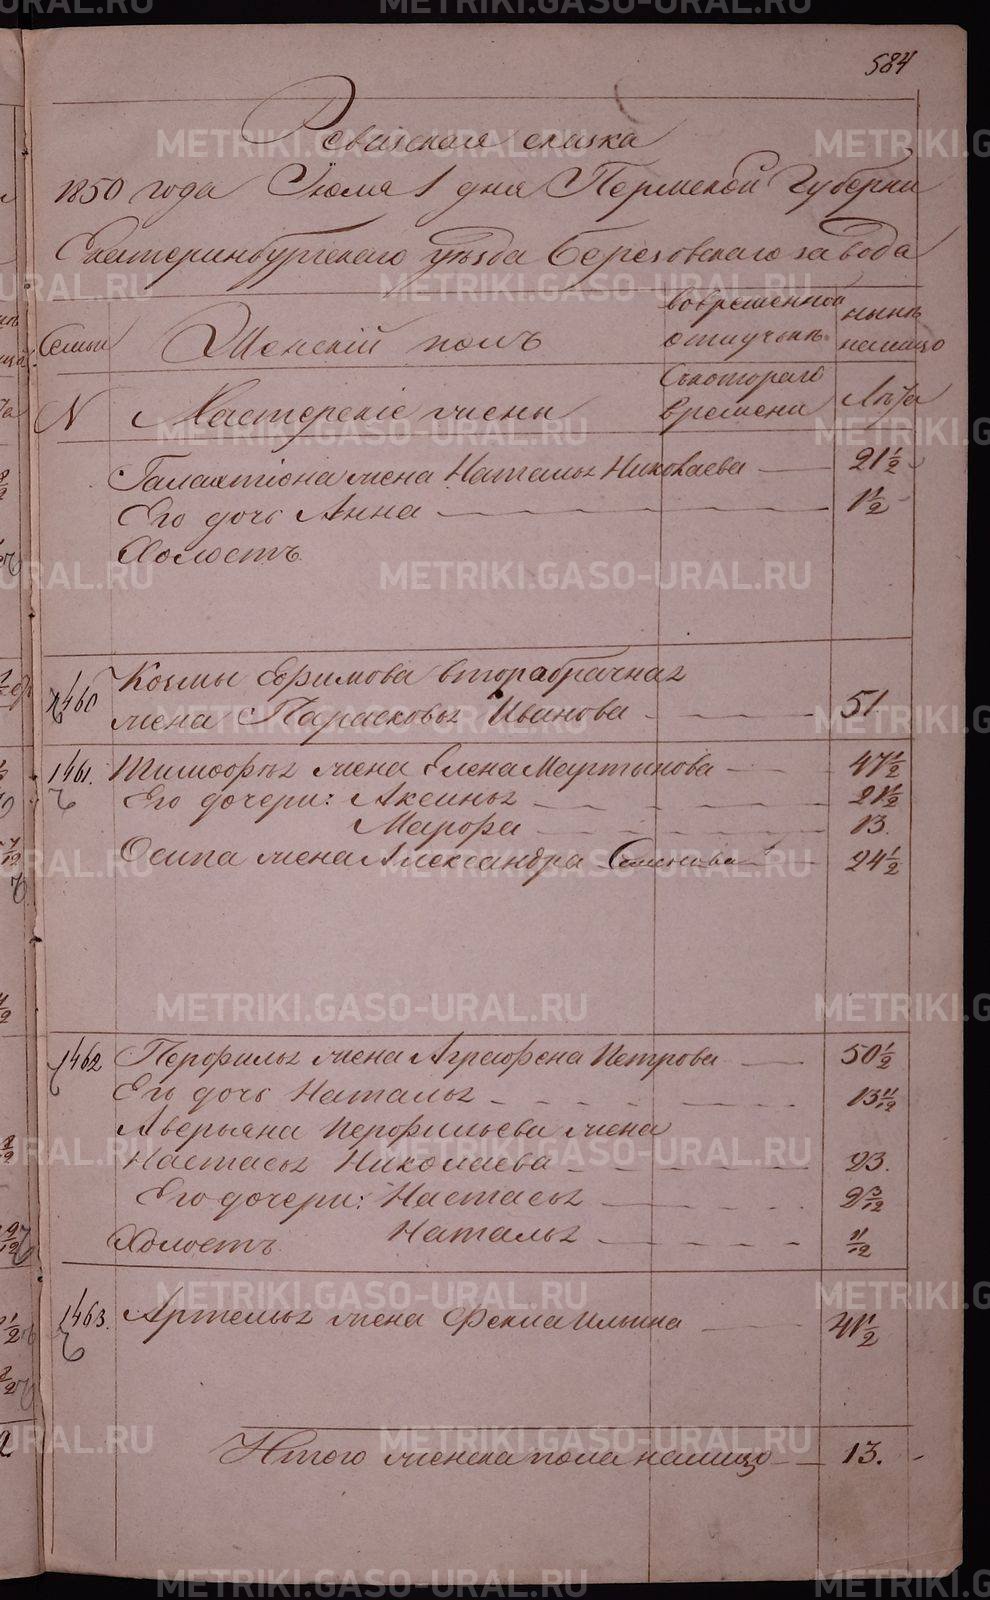 584
Ревизская сказка
1850 года Июля 1 дня Пермской Губерни
Екатеринбургского уѣзда Березовского завода
Семьи
Женскій полъ
вовременной отлучкѣ
нынѣ налицо
N
Мастерскіе жены
Съкотораго времени
Лѣта
Галактіона жена Наталья Николаева 21 1/2
Его дочь Анна 1 1/2
Холостъ
1460 Козмы Ефимова вторабрачная
жена Парасковья Иванова 51
1461. Тимофѣя жена Елена Мартынова 47 1/2
Его дочери: Аксинья 21 1/2
Марфа 13.
Осипа жена Александра Семенова 24 1/2
1462 Перфилья жена Аграфена Петрова 50 1/2
Его дочь Наталья 13 11/12
Аверьяна Перфильева жена
Настасья Николаева 23.
Его дочери: Настасья 2 3/12
Наталья 11/12
Холостъ
1463. Артемья жена Фекла Ильина 41 1/2
Итого женска пола налицо 13.
METRIKI.GASO-URAL.RU